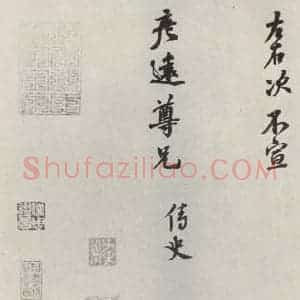 左右次不宣
彥遠尊兄 侍史
Shufaziliao.com